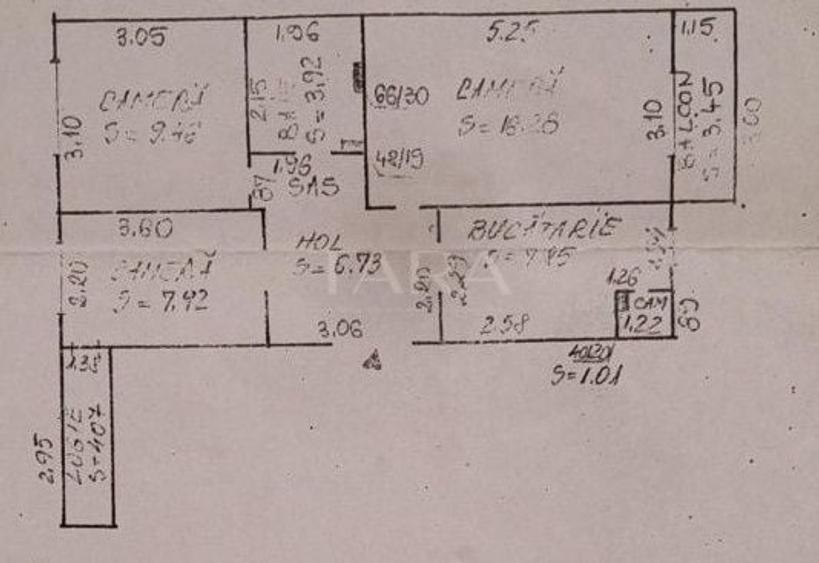 3.05
CAMERĂ
S = 9.46
3.10
1.96
2.15
BAIE
S = 3.92
5.25
66/30
CAMERĂ
S = 16.28
42/19
3.10
1.15
BALCON
S = 3.45
3.00
1.96
87
SAS
3.60
CAMERĂ
S = 7.92
2.20
HOL
S = 6.73
3.06
2.20
BUCĂTARIE
S = 7.85
2.58
1.26
CAM
1.22
89
40/20
S = 1.01
1.38
LOGIE
S = 4.07
2.95
TARA